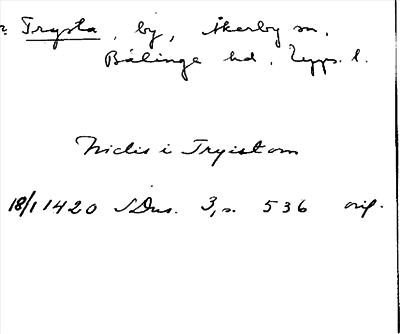 Trysta, by, Åkerby sn,
Bälinge hd, Upps. l.
Nidis i Tryistom
18/1 1420 SDns. 3, s. 536 orig.